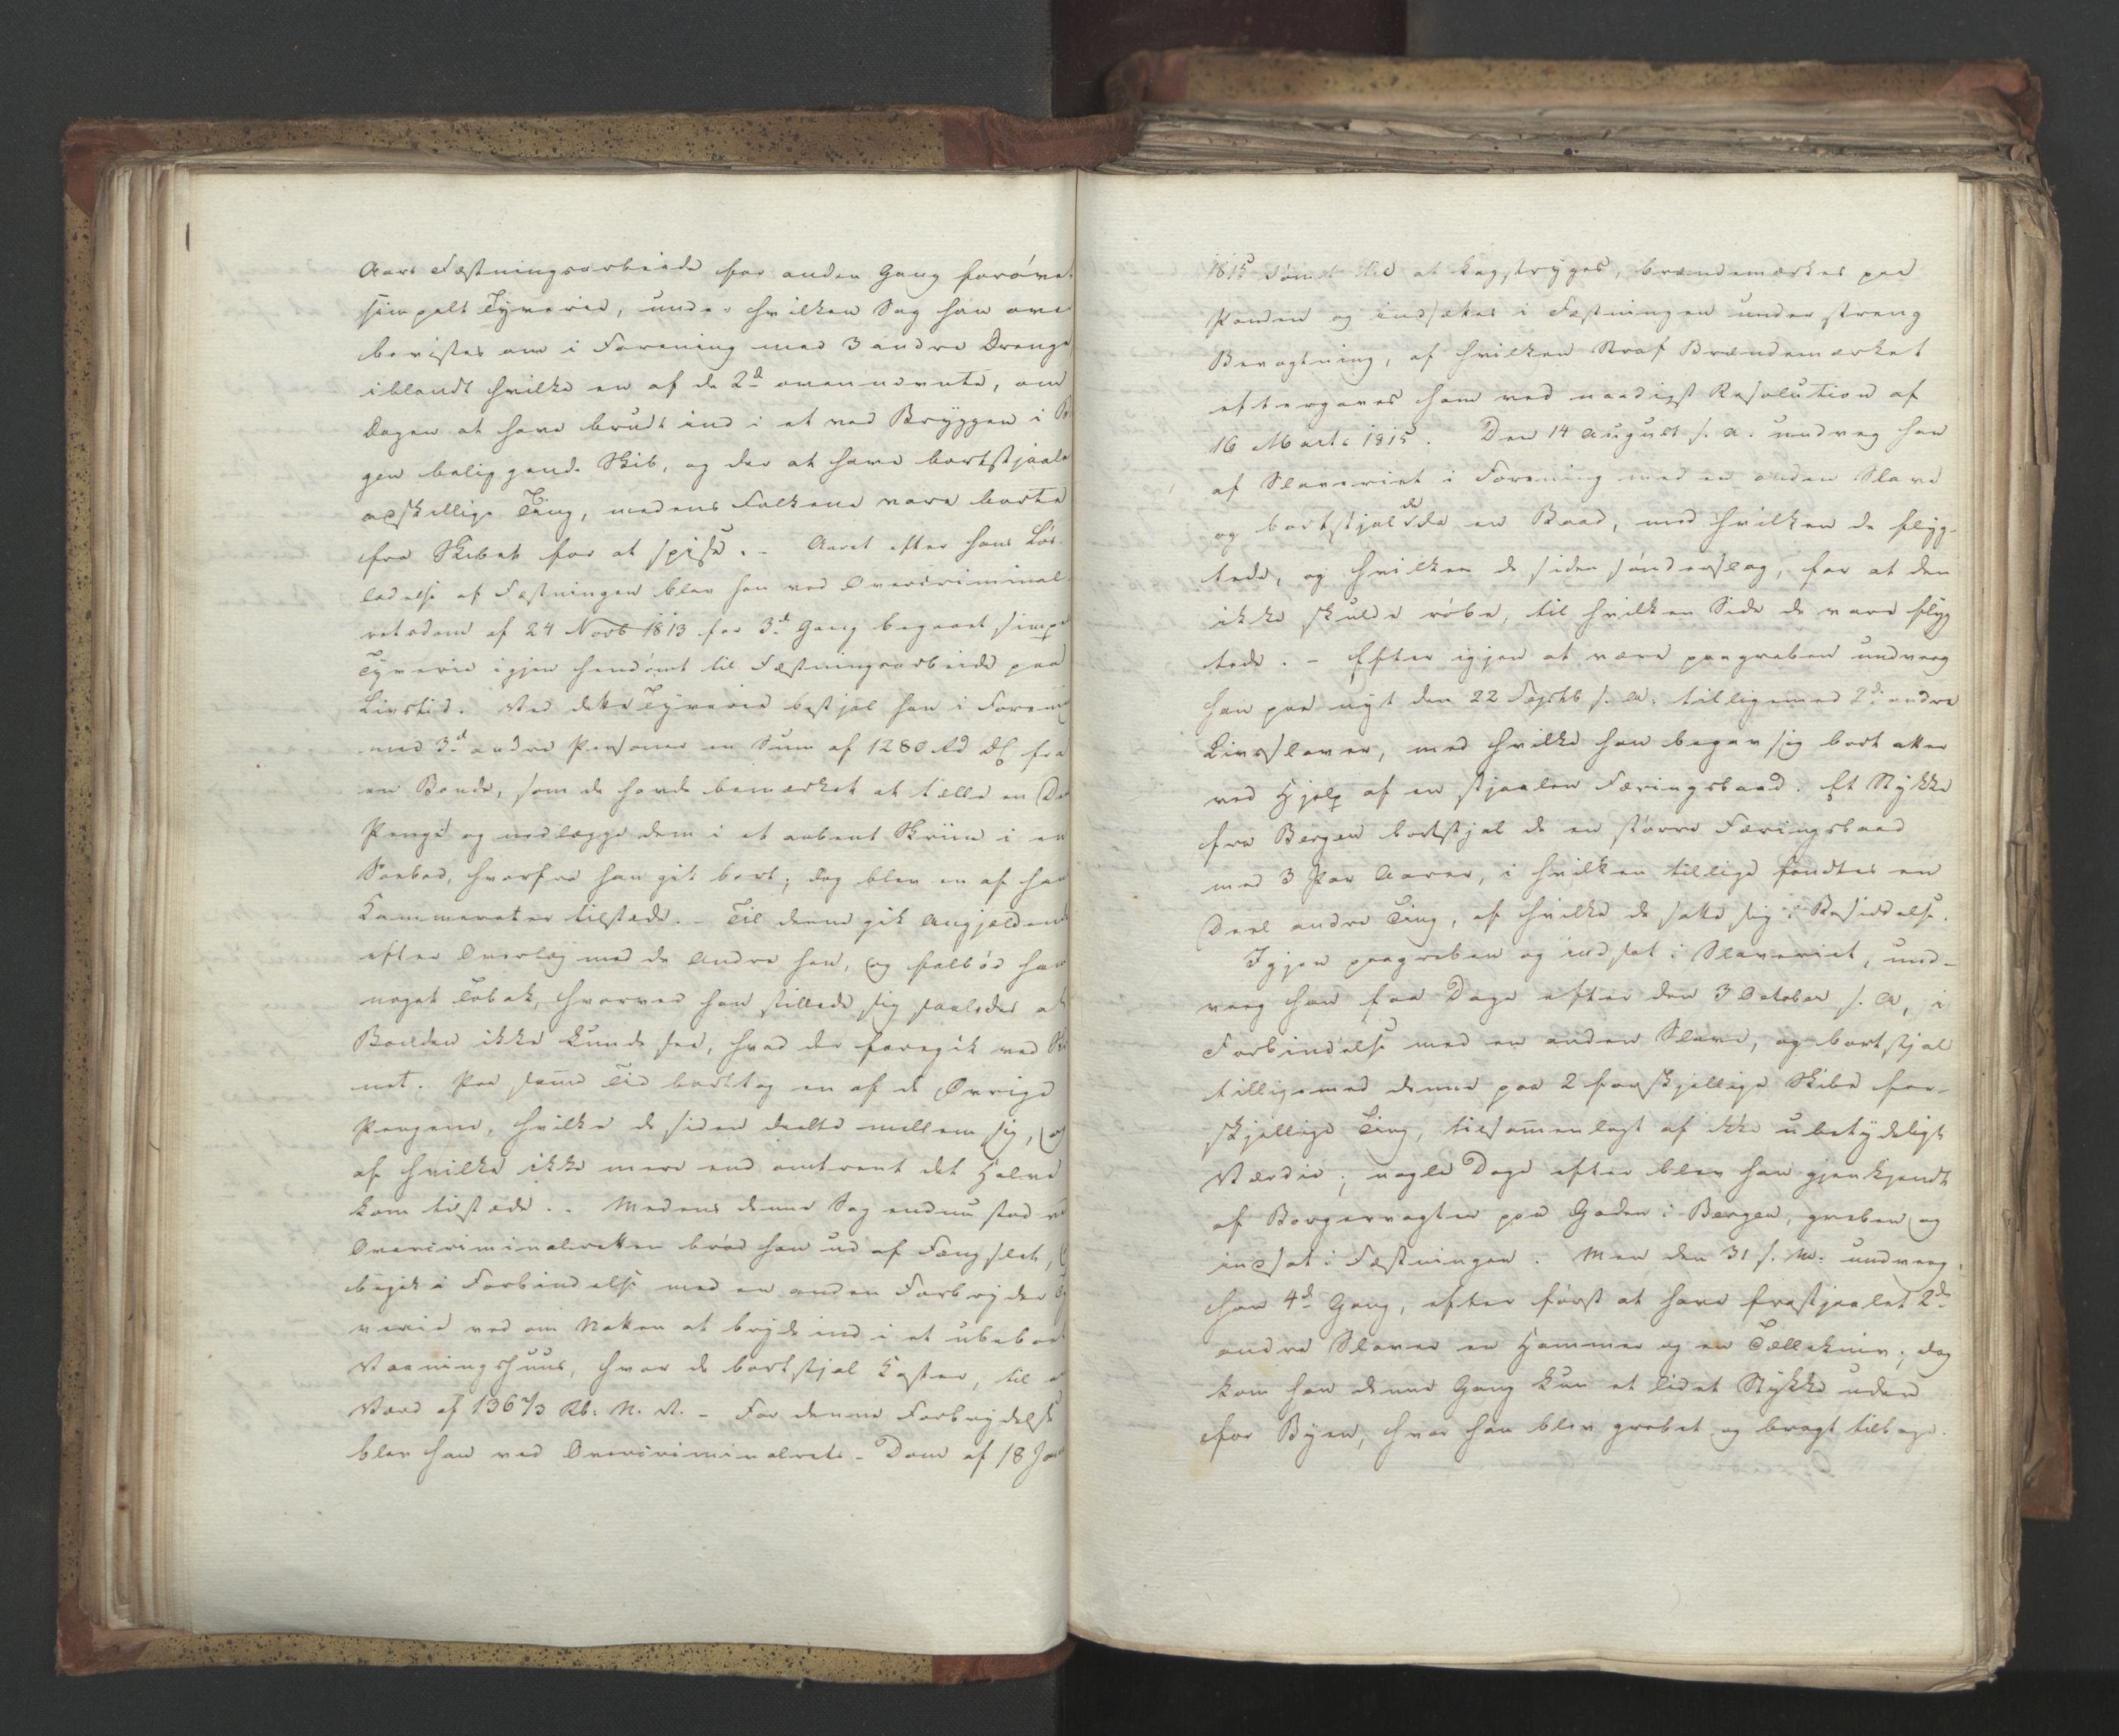 Aars Fæstningsarbeide for anden Gang forøvet
simpelt Tyverie, under hvilken Sag han over
bevistes om i Forening med 3 andre Drenge
iblandt hvilke en af de 2de ovennævnte, om
Dagen at have brudt ind i et ved Bryggen i B
gen beliggende Skib, og der at have bortstjaale
adskillige Ting, medens Folkene vare borte
fra Skibet for at spise. - Aaret efter hans Lös-
ladelse af Fæstningen blev han ved Overcriminal-
retsdom af 24 Novb 1813 for 3die Gang begaaet simpe
Tyverie igjen hendømt til Fæstningsarbeide paa
Livstid. Ved dette Tyverie bestjal han i Foreni
med 3de andre Personer en Sum af 1280 Rd DC fra
en Bonde, som de havde bemærket at tælle en De
Penge og nedlægge dem i et aabent Skriin i en
Søebod, hvorfra han gik bort; dog blev en af han
Kammerater tilstæde. - Til denne gik Angjældend
efter Overlæg med de Andre hen, og falbød ham
noget Tobak, hvorved han stillede sig saaledes at
Bonden ikke kunde see, hvad der foregik ved Skri
net. Paa samme Tid borttog en af de Øvrige
Pengene, hvilke de siden deelte mellem sig, og
af hvilke ikke mere end omtrent det Halve
kom tilstæde. - Medens denne Sag endnu stod ve
Overcriminalretten brød han ud af Fængslet,
begik i Forbindelse med en anden Forbryder Ty
verie ved om Natten at bryde ind i et ubeboet
Vaaningshuus, hvor de bortstjal Koster, til e
Værd af 136 2/3 Rb. N. V. - For denne Forbrydelse
blev han ved Overcriminalrets-Dom af 18 Jan
1815 dømt til at kagstryges, brændemærkes paa
Panden og indsættes i Fæstningen under streng
Bevogtning, af hvilken Straf Brændemærket
eftergaves ham ved naadigst Resolution af
16 Marts 1815. Den 14 August s. A. undveg han
af Slaveriet i Forening med en anden Slave
og bortstjal de en Baad, med hvilken de flyg-
tede, og hvilken de siden sønderslog, for at den
ikke skulde røbe, til hvilken Side de vare flyg
tede. - Efter igjen at være paagreben undveeg
han paa nyt den 22 Septb s. A. tilligemed 2de andre
Livsslaver, med hvilke han begav sig bort atter
ved Hjelp af en stjaalen Færingsbaad. Et Stykke
fra Bergen bortstjal de en større Færingsbaad
med 3 Par Aarer, i hvilken tillige fandtes en
Deel andre Ting, af hvilke de satte sig i Besiddelse.
Igjen paagreben og indsat i Slaveriet, und-
veeg han faa Dage efter den 3 October s. A, i
Forbindelse med en anden Slave, og bortstjal
tilligemed denne paa 2 forskjellige Skibe for-
skjellige Ting, tilsammenlagt af ikke ubetydeligt
Værdie; nogle Dage efter blev han gjenkjendt
af Borgervagten paa Gaden i Bergen, greben og
indsat i Fæstningen. Men den 31 s. M. undveeg
han 4de Gang, efter først at have frastjaalet 2de
andre Slaver en Hammer og en Tællekniv; dog
kom han denne Gang kun et lidet Stykke uden
for Byen, hvor han blev grebet og bragt tilbage.